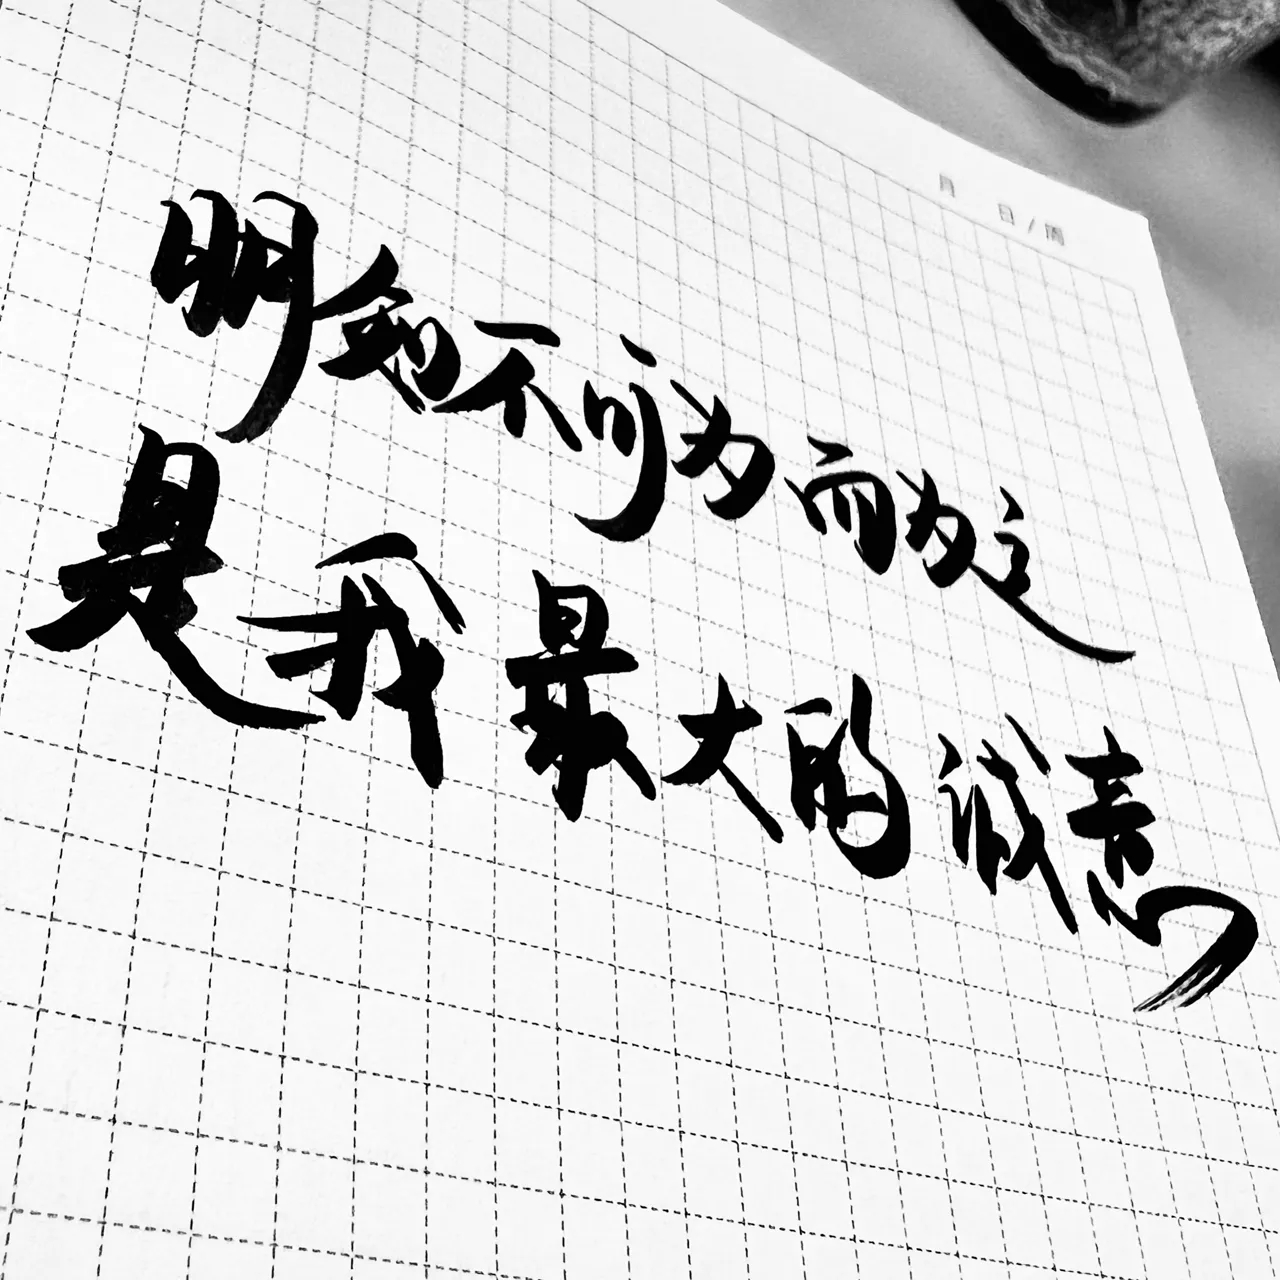 月
日/周
明知不可为而为之
是我最大的诚意